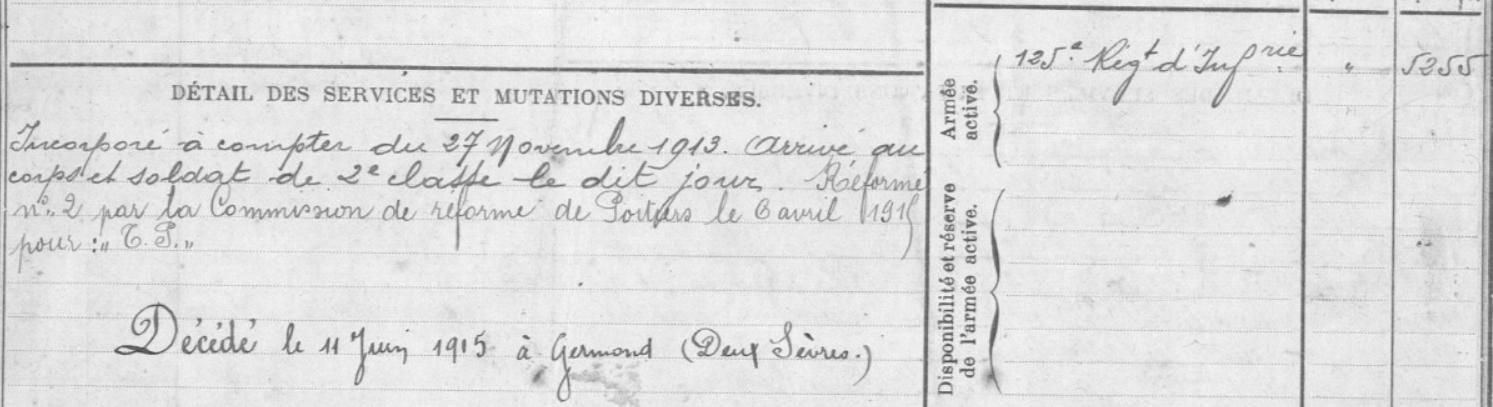 DÉTAIL DES SERVICES ET MUTATIONS DIVERSES.
Incorporé à compter du 27 Novembre 1913. Arrivé au
corps et soldat de 2e classe le dit jour. Réformé
n° 2 par la Commission de réforme de Poitiers le 6 avril 1915
pour : „ T. P. „
Décédé le 11 Juin 1915 à Germond (Deux Sèvres.)
Armée
active.
125e Régt d'Infrie " 5255
Disponibilité et réserve
de l'armée active.